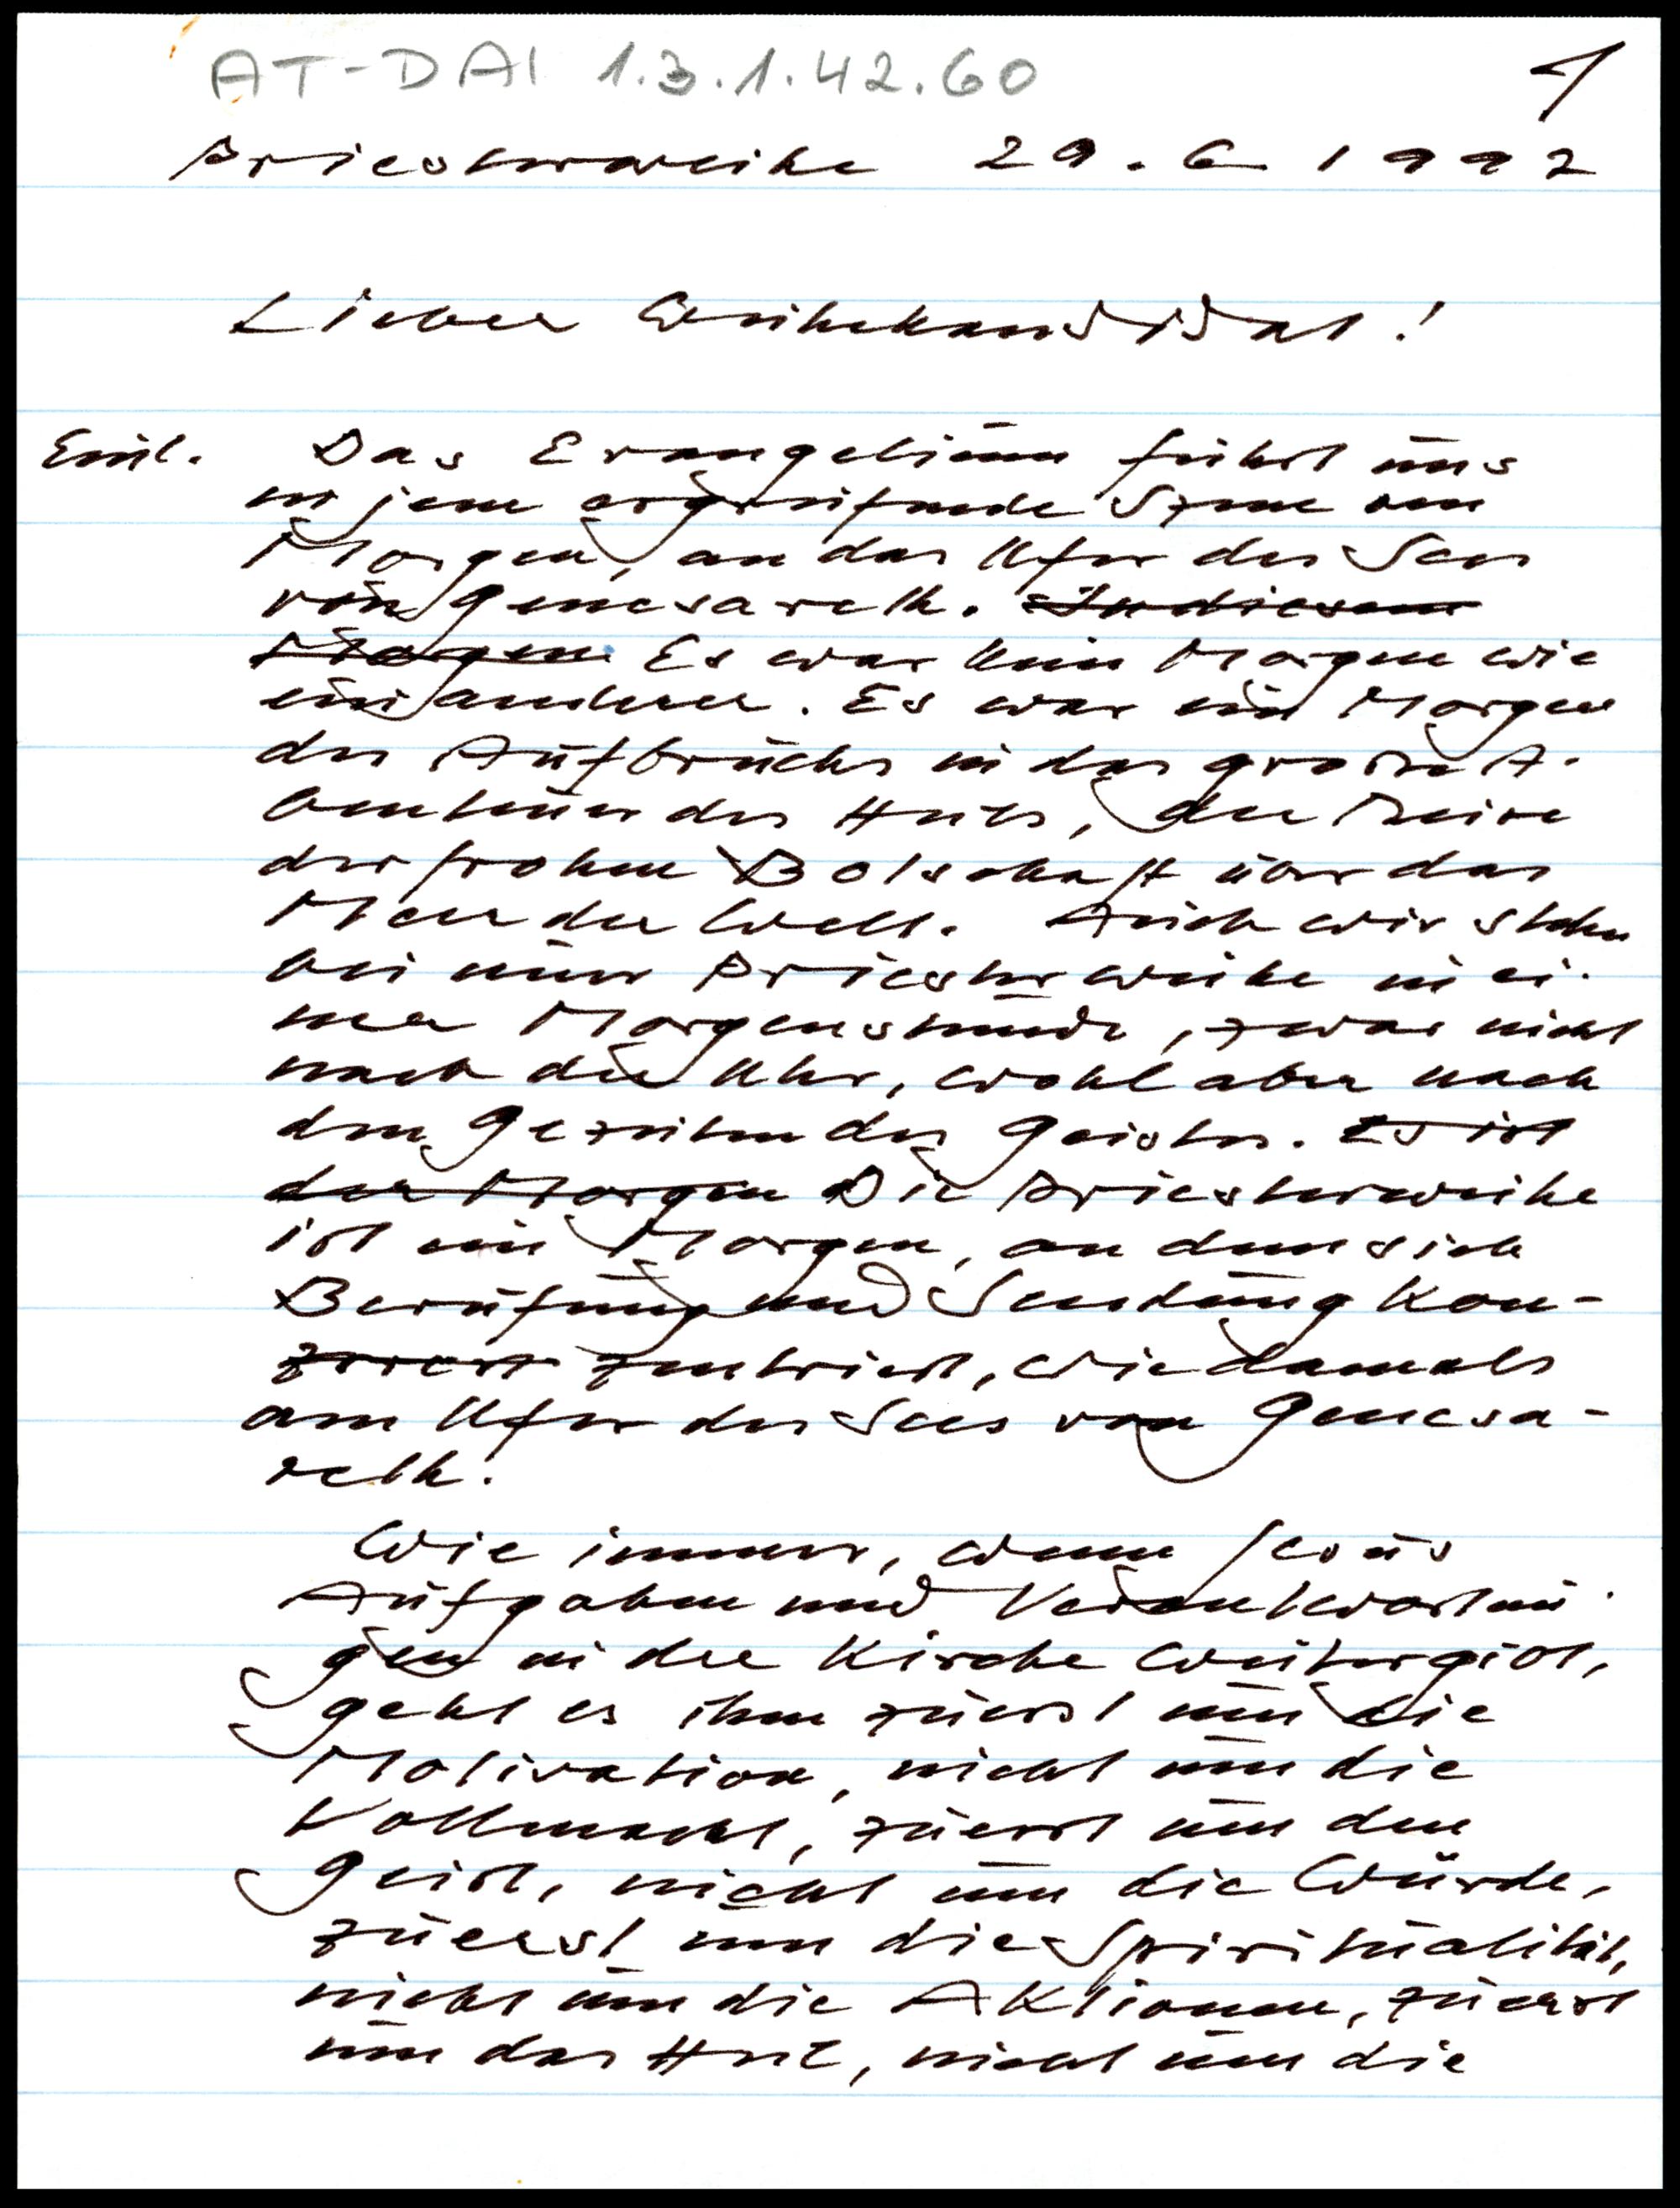 AT-DAI 1.3.1.42.60
1
Priesterweihe 29. 6 1992
Lieber Weihekandidat!
Einl. Das Evangelium führt uns
in jene ergreifende Szene am
Morgen, an das Ufer des Sees
von Genesareth. In diesem
Morgen Es war kein Morgen wie
ein anderer. Es war ein Morgen
des Aufbruchs in das grosse A-
benteuer des Heils, der Reise
der frohen Botschaft über das
Meer der Welt. Auch wir stehen
bei einer Priesterweihe in ei-
ner Morgenstunde, zwar nicht
nach der Uhr, wohl aber nach
den Gezeiten des Geistes. Es ist
der Morgen Die Priesterweihe
ist ein Morgen, an dem sich
Berufung und Sendung kon-
zentriert, wie damals
am Ufer des Sees von Genesa-
reth.
Wie immer, wenn Jesus
Aufgaben und Verantwortun-
gen in der Kirche weitergibt,
geht es ihm zuerst um die
Motivation, nicht um die
Vollmacht, zuerst um den
Geist, nicht um die Würde,
zuerst um die Spiritualität,
nicht um die Aktionen, zuerst
um das Heil, nicht um die